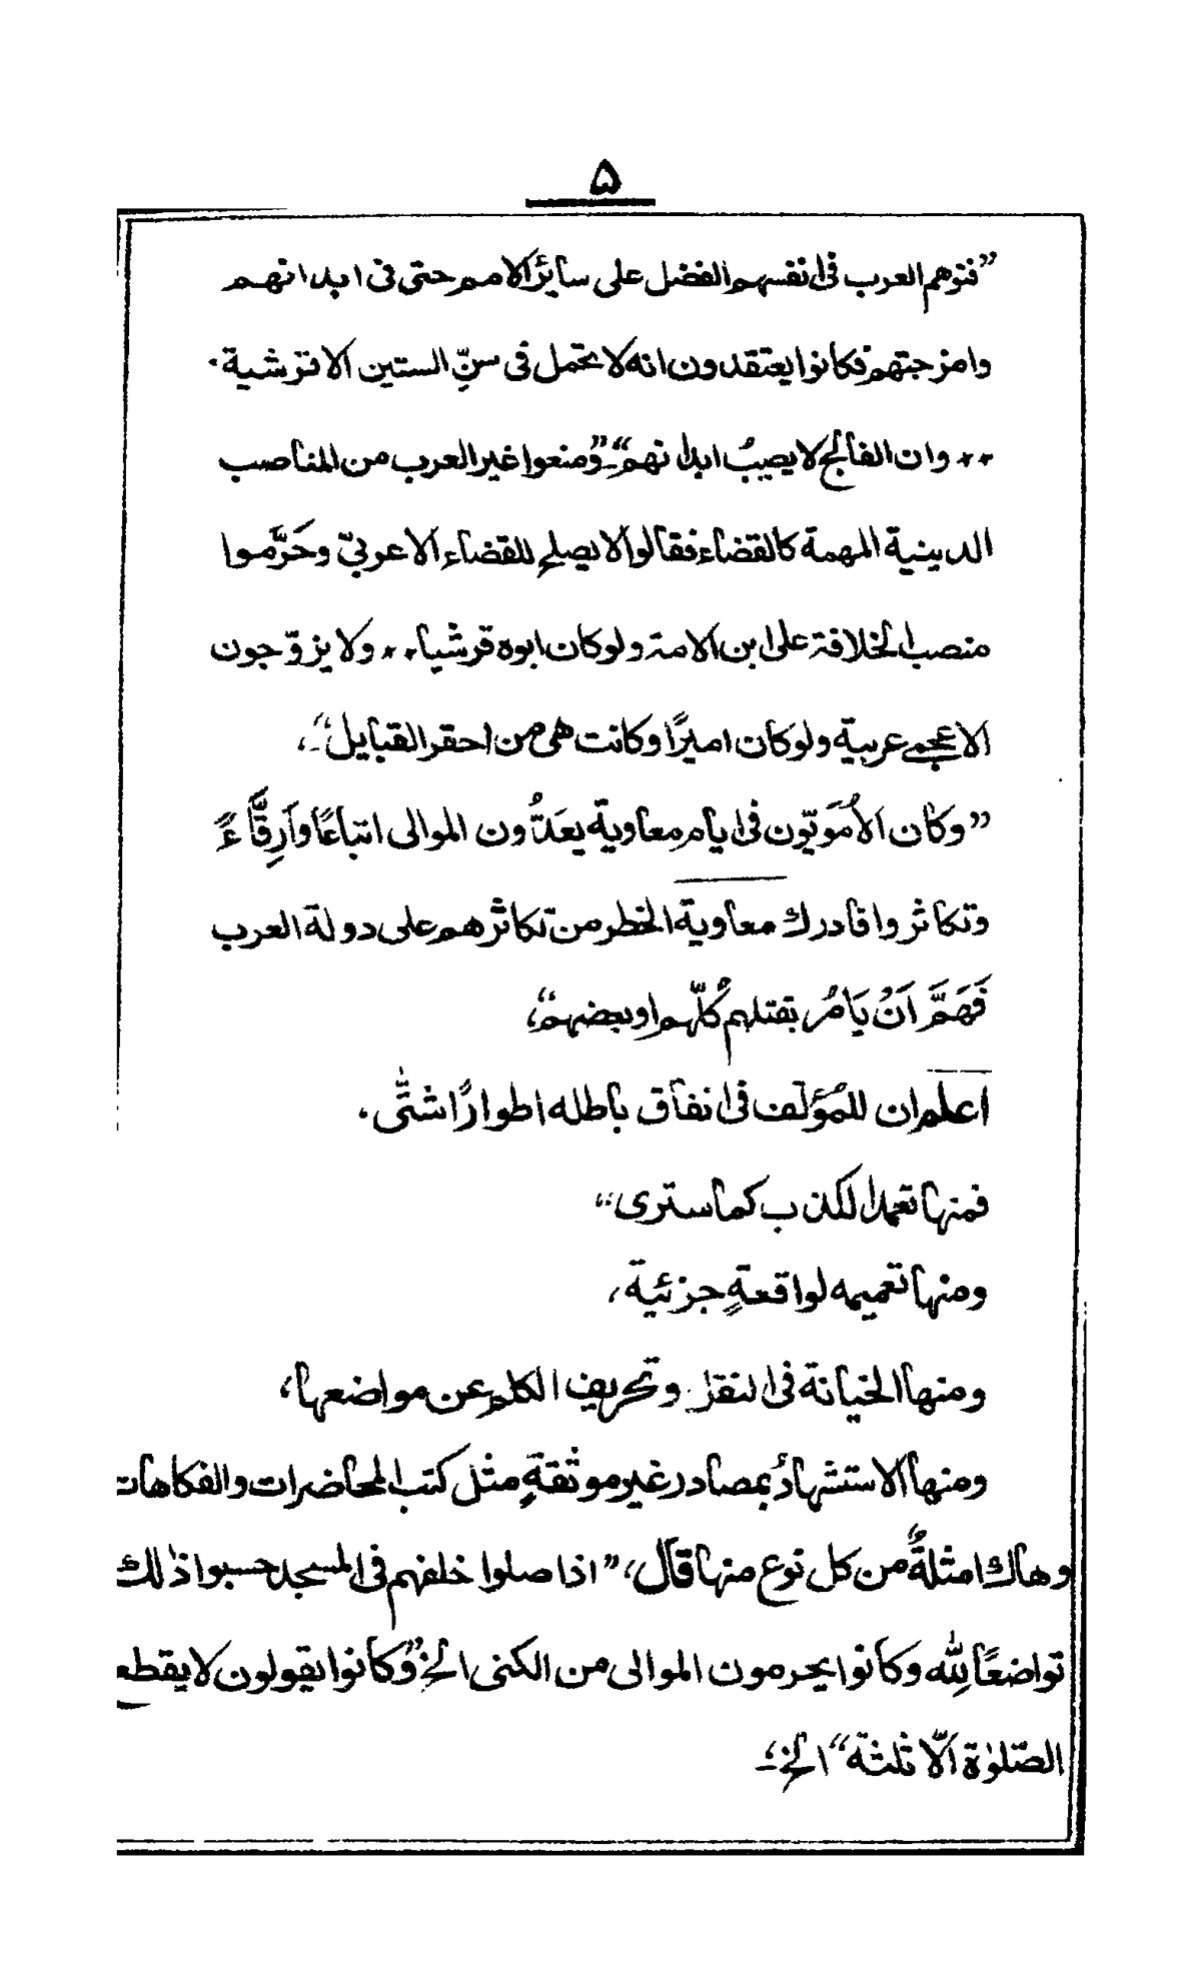 ۵
”فتوهم العرب فى انفسهم الفضل على سائر الامم حتى فى ابدانهم
وامزجتهم فكانوا يعتقدون انه لا تحمل فى سنّ الستين الا قرشية٠
٭٭ وان الفالج لا يصيبُ ابدانهم“ ”ومنعوا غير العرب من المناصب
الدينية المهمة كالقضاء فقالوا لا يصلح للقضاء الا عربىّ وحَرَّموا
منصب الخلافة على ابن الامة ولو كان ابوه قرشيا ٭٭ ولا يزوّجون
الاعجمى عربية ولو كان اميرًا وكانت هى من احقر القبايل“،
”وكان الاُمَويّون فى ايام معاوية يعَدُّون الموالى اتباعًا واَرِقَّاءً
وتكاثروا فادرك معاوية الخطر من تكاثرهم على دولة العرب
فَهَمَّ اَنْ يَامُر بقتلهم كُلّهم او بعضهم“،
اعلم ان للمُؤلّف فى انفاق باطله اطوارًا شتّٰى٠
فمنها تعمد الكذب كما سترى“
ومنها تعميمه لواقعةٍ جزئية،
ومنها الخيانة فى النقل وتحريف الكلم عن مواضعها،
ومنها الاستشهادُ بمصادر غير موثقةٍ مثل كتب المحاضرات والفكاهات
وهاك امثلةً من كل نوع منها قال، ”اذا صلوا خلفهم فى المسجد حسبوا ذٰلك
تواضعًا لِلّٰه وكانوا يحرمون الموالى من الكنى الخ ”وكانوا يقولون لا يقطع
الصّلوٰة الّا ثلثة“ الخ؛